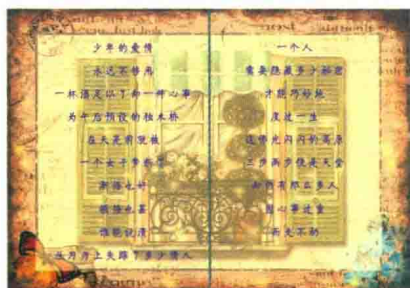 少年的爱情
永远不够用
一杯酒足以了却一件心事
为午后预设的独木桥
在天亮前就被
一个女子梦断了
渐悟也好
顿悟也罢
谁能说清
从月亮上失踪了多少情人
一个人
需要隐藏多少秘密
才能巧妙地
度过一生
这佛光闪闪的高原
三步两步便是天堂
却仍有那么多人
因心事过重
而走不动